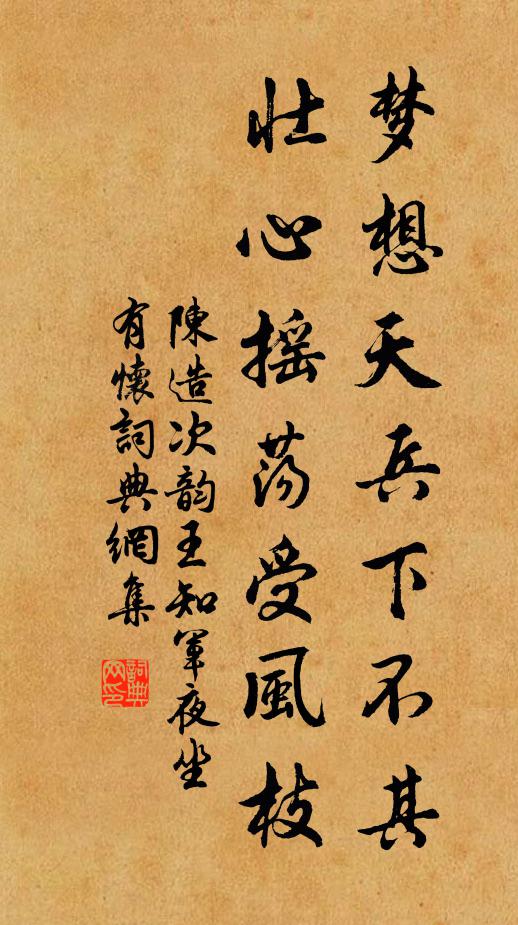 梦想天兵下不其
壮心摇荡受風枝
陳造次韵王知軍夜坐
有懷詞典網集
詞典网印